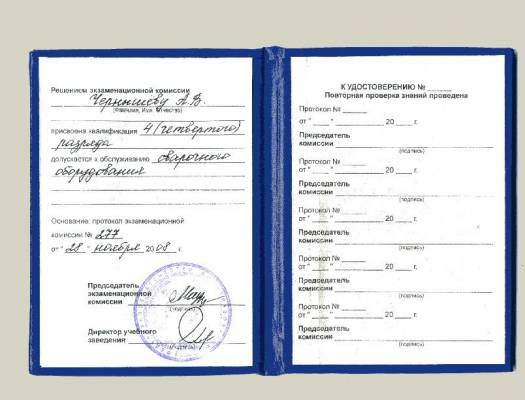 Решением экзаменационной комиссии
Чернышеву А.В.
(Фамилия, Имя, Отчество)
присвоена квалификация 4 (четвертого)
разряда
допускается к обслуживанию сварочного
оборудования
Основание: протокол экзаменационной
комиссии № 277
от "28" ноября 2008 г.
Председатель
экзаменационной
комиссии
(подпись)
Директор учебного
заведения
(подпись)
К УДОСТОВЕРЕНИЮ № ____
Повторная проверка знаний проведена
Протокол № ____
от "____" ____ 20 ____ г.
Председатель
комиссии
(подпись)
Протокол № ____
от "____" ____ 20 ____ г.
Председатель
комиссии
(подпись)
Протокол № ____
от "____" ____ 20 ____ г.
Председатель
комиссии
(подпись)
Протокол № ____
от "____" ____ 20 ____ г.
Председатель
комиссии
(подпись)
Протокол № ____
от "____" ____ 20 ____ г.
Председатель
комиссии
(подпись)